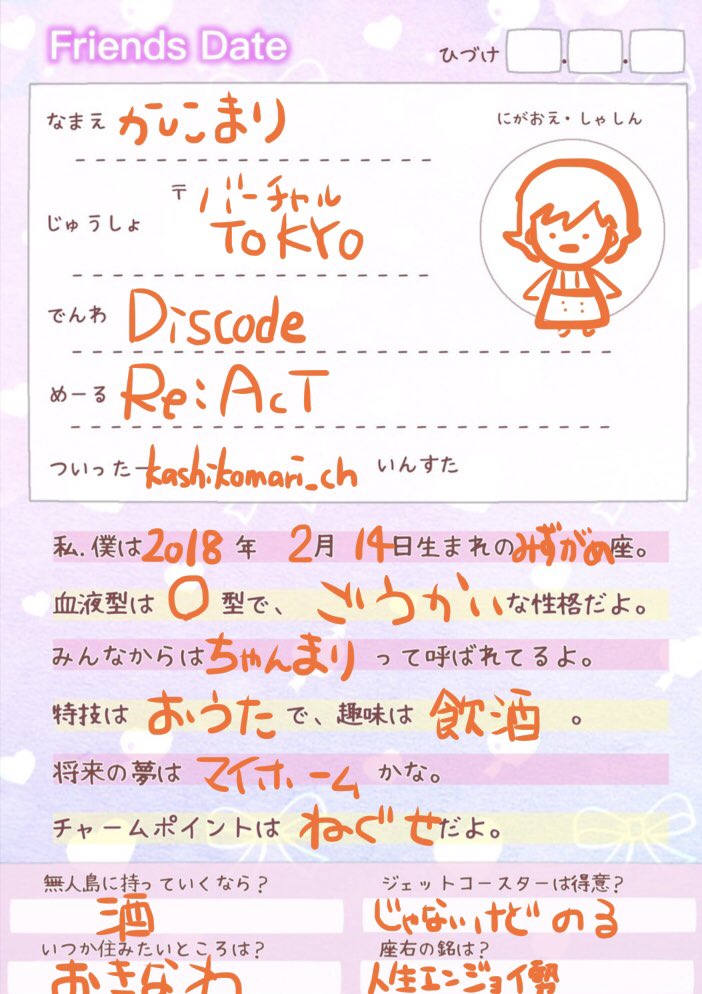 Friends Date
ひづけ . .
なまえ かしこまり
にがおえ・しゃしん
じゅうしょ 〒バーチャル
TOKYO
でんわ Discode
めーる Re:AcT
ついったー kashikomari_ch いんすた
私.僕は2018年 2月 14日生まれのみずがめ座。
血液型は O 型で、ごうかいな性格だよ。
みんなからはちゃんまり って呼ばれてるよ。
特技は おうた で、趣味は 飲酒 。
将来の夢は マイホーム かな。
チャームポイントは ねぐせだよ。
無人島に持っていくなら? ジェットコースターは得意?
酒 じゃないけど のる
いつか住みたいところは? 座右の銘は?
おきなわ 人生エンジョイ勢